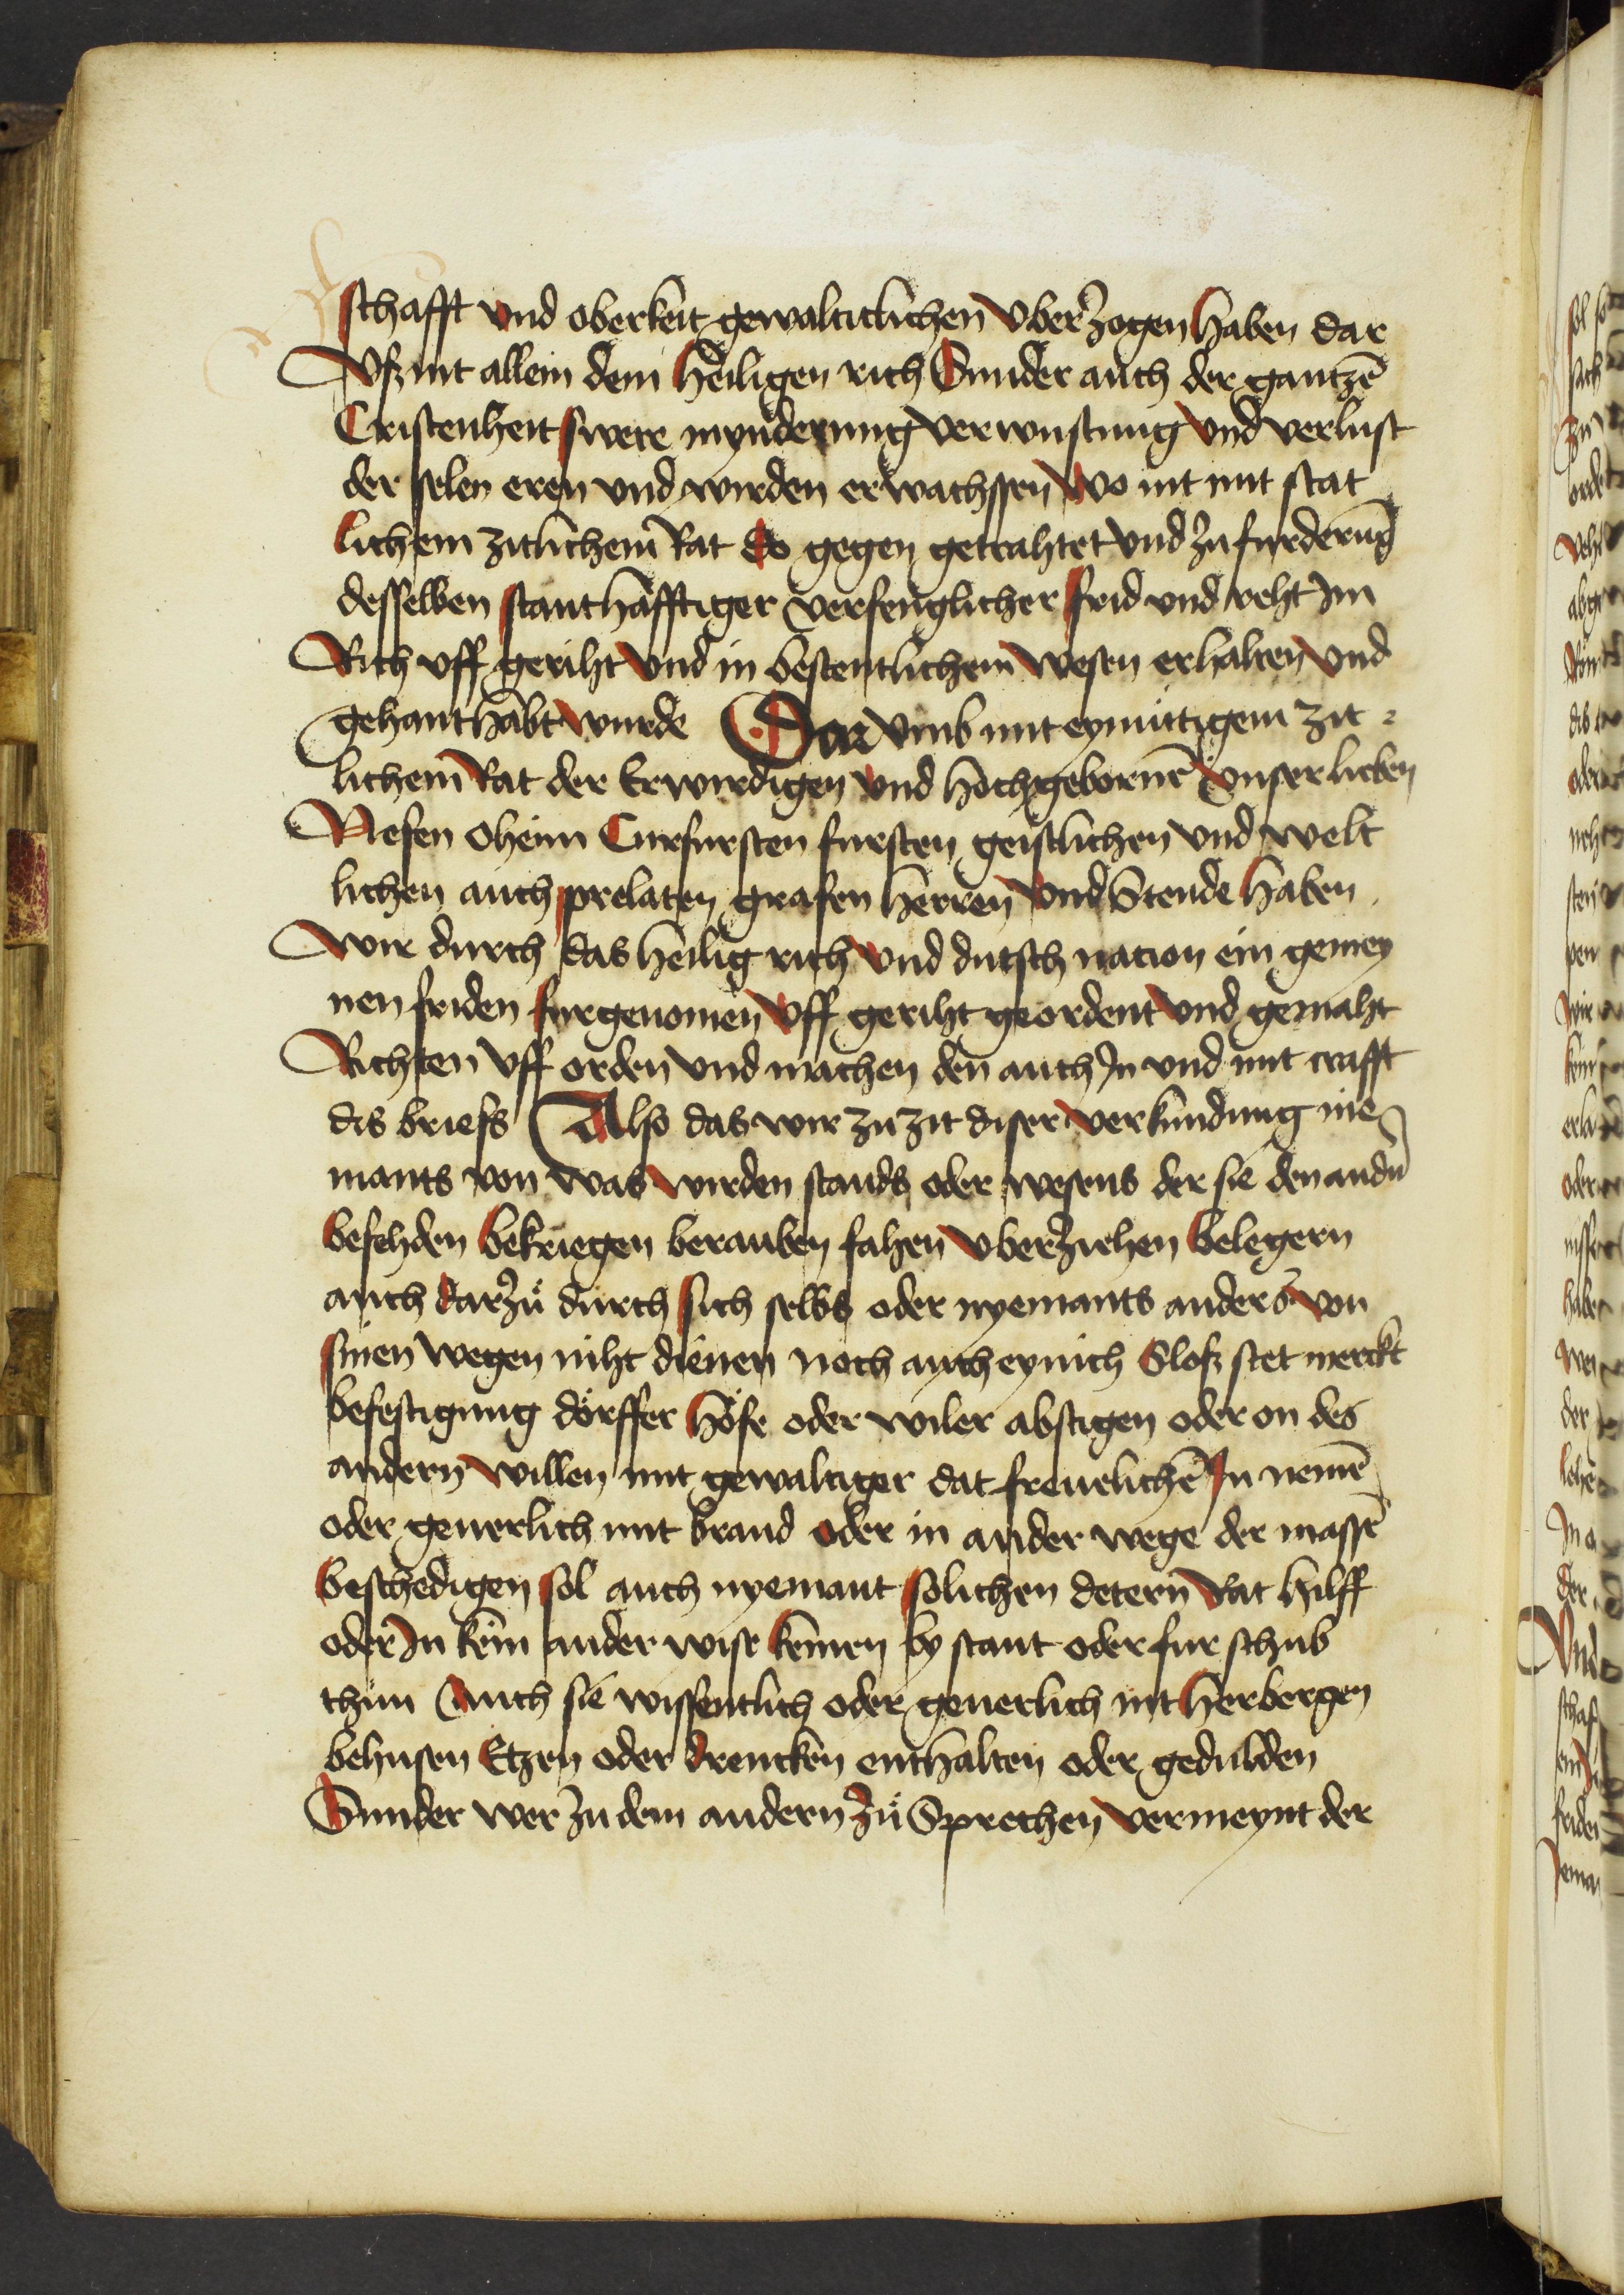 schafft vnd oberkeit gewalticlichen vber zogen haben dar
Vß nit allein dem heiligen rich Sunder auch der gantzē
Cristenheit swere mynderung verwustung vnd verlust
der selen eren vnd wirden erwachssen wo nit mit stat
lichem zitlichem Rat do gegen getrahtet vnd zu furderūg
desselben stanthafftiger verfenglicher frid vnd reht Im
Rich vff geriht vnd in bestentlichem wesen erhalten vnd
gehanthabt wurde Dar vmb mit eymuttigem zit
lichem Rat der Erwirdigen vnd hochgebornē vnser lieben
Nefen oheim Curfursten fursten geistlichen vnd welt
lichen auch prelaten grafen herren vnd Stende haben
Wir durch das heilig rich vnd dutsch nacion ein gemey
nen friden furgenomen vff geriht geordent vnd gemaht
Richten vff orden vnd machen den auch In vnd mit crafft
dis briefs Also das wir zu zit diser verkundung nie
mants von was wirden stands oder wesens der sie den andn̄
befehden bekriegen berauben fahen vberziehen belegern
auch darzů durch sich selbs oder nyemants anders von
sinen wegen niht dienen noch auch eynich Sloß stet merckt
befestigung dörffer höfe oder wiler abstigen oder on des
andern willen mit gewaltiger dat freuelichē In nemē
oder geuerlich mit brand oder in ander wege der massē
beschedigen sol auch nyemant solichen detern Rat hilff
oder In kein ander wise keinen by stant oder fur schub
thun Auch sie wissentlich oder geuerlich nit herbergen
behusen Etzen oder drencken enthalten oder gedulden
Sunder wer zu dem andern zů Sprechen vermeynt der